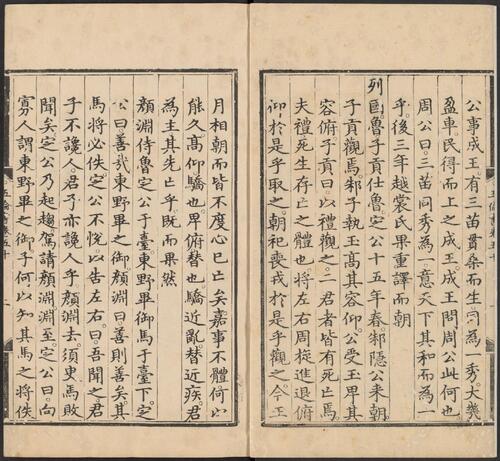 公事成王有三苗貫桑而生同為一秀大幾
盈車民得而上之成王成王問周公此何也
周公曰三苗同秀為一意天下其和而為一
乎後三年越裳氏果重譯而朝
列國魯子貢仕魯定公十五年春邾隱公來朝
子貢觀焉邾子執玉高其容仰公受玉卑其
容俯子貢曰以禮觀之二君者皆有死亡焉
夫禮死生存亡之體也將左右周旋進退俯
仰於是乎取之朝祀喪戎於是乎觀之今正
月相朝而皆不度心已亡矣嘉事不體何以
能久高仰驕也卑俯替也驕近亂替近疾君
為主其先亡乎既而果然
顏淵侍魯定公于臺東野畢御馬于臺下定
公曰善哉東野畢之御顏淵曰善則善矣其
馬將必佚定公不悅以告左右曰吾聞之君
子不讒人君子亦讒人乎顏淵去須臾馬敗
聞矣定公乃起趨駕請顏淵顏淵至定公曰向
寡人謂東野畢之御子何以知其馬之將佚